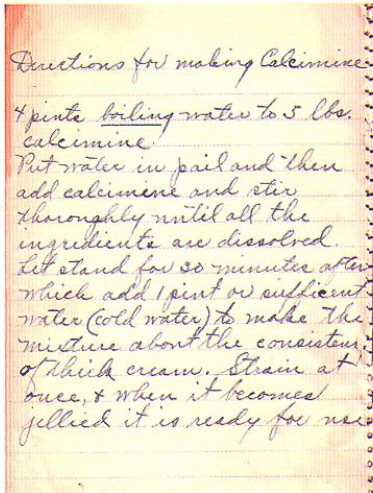 Directions for making Calcimine
4 pints boiling water to 5 lbs.
calcimine
Put water in pail and then
add calcimine and stir
thoroughly until all the
ingredients are dissolved.
Let stand for 30 minutes after
which add 1 pint or sufficent
water (cold water) to make the
mixture about the consistency
of thick cream. Strain at
once, & when it becomes
jellied it is ready for use